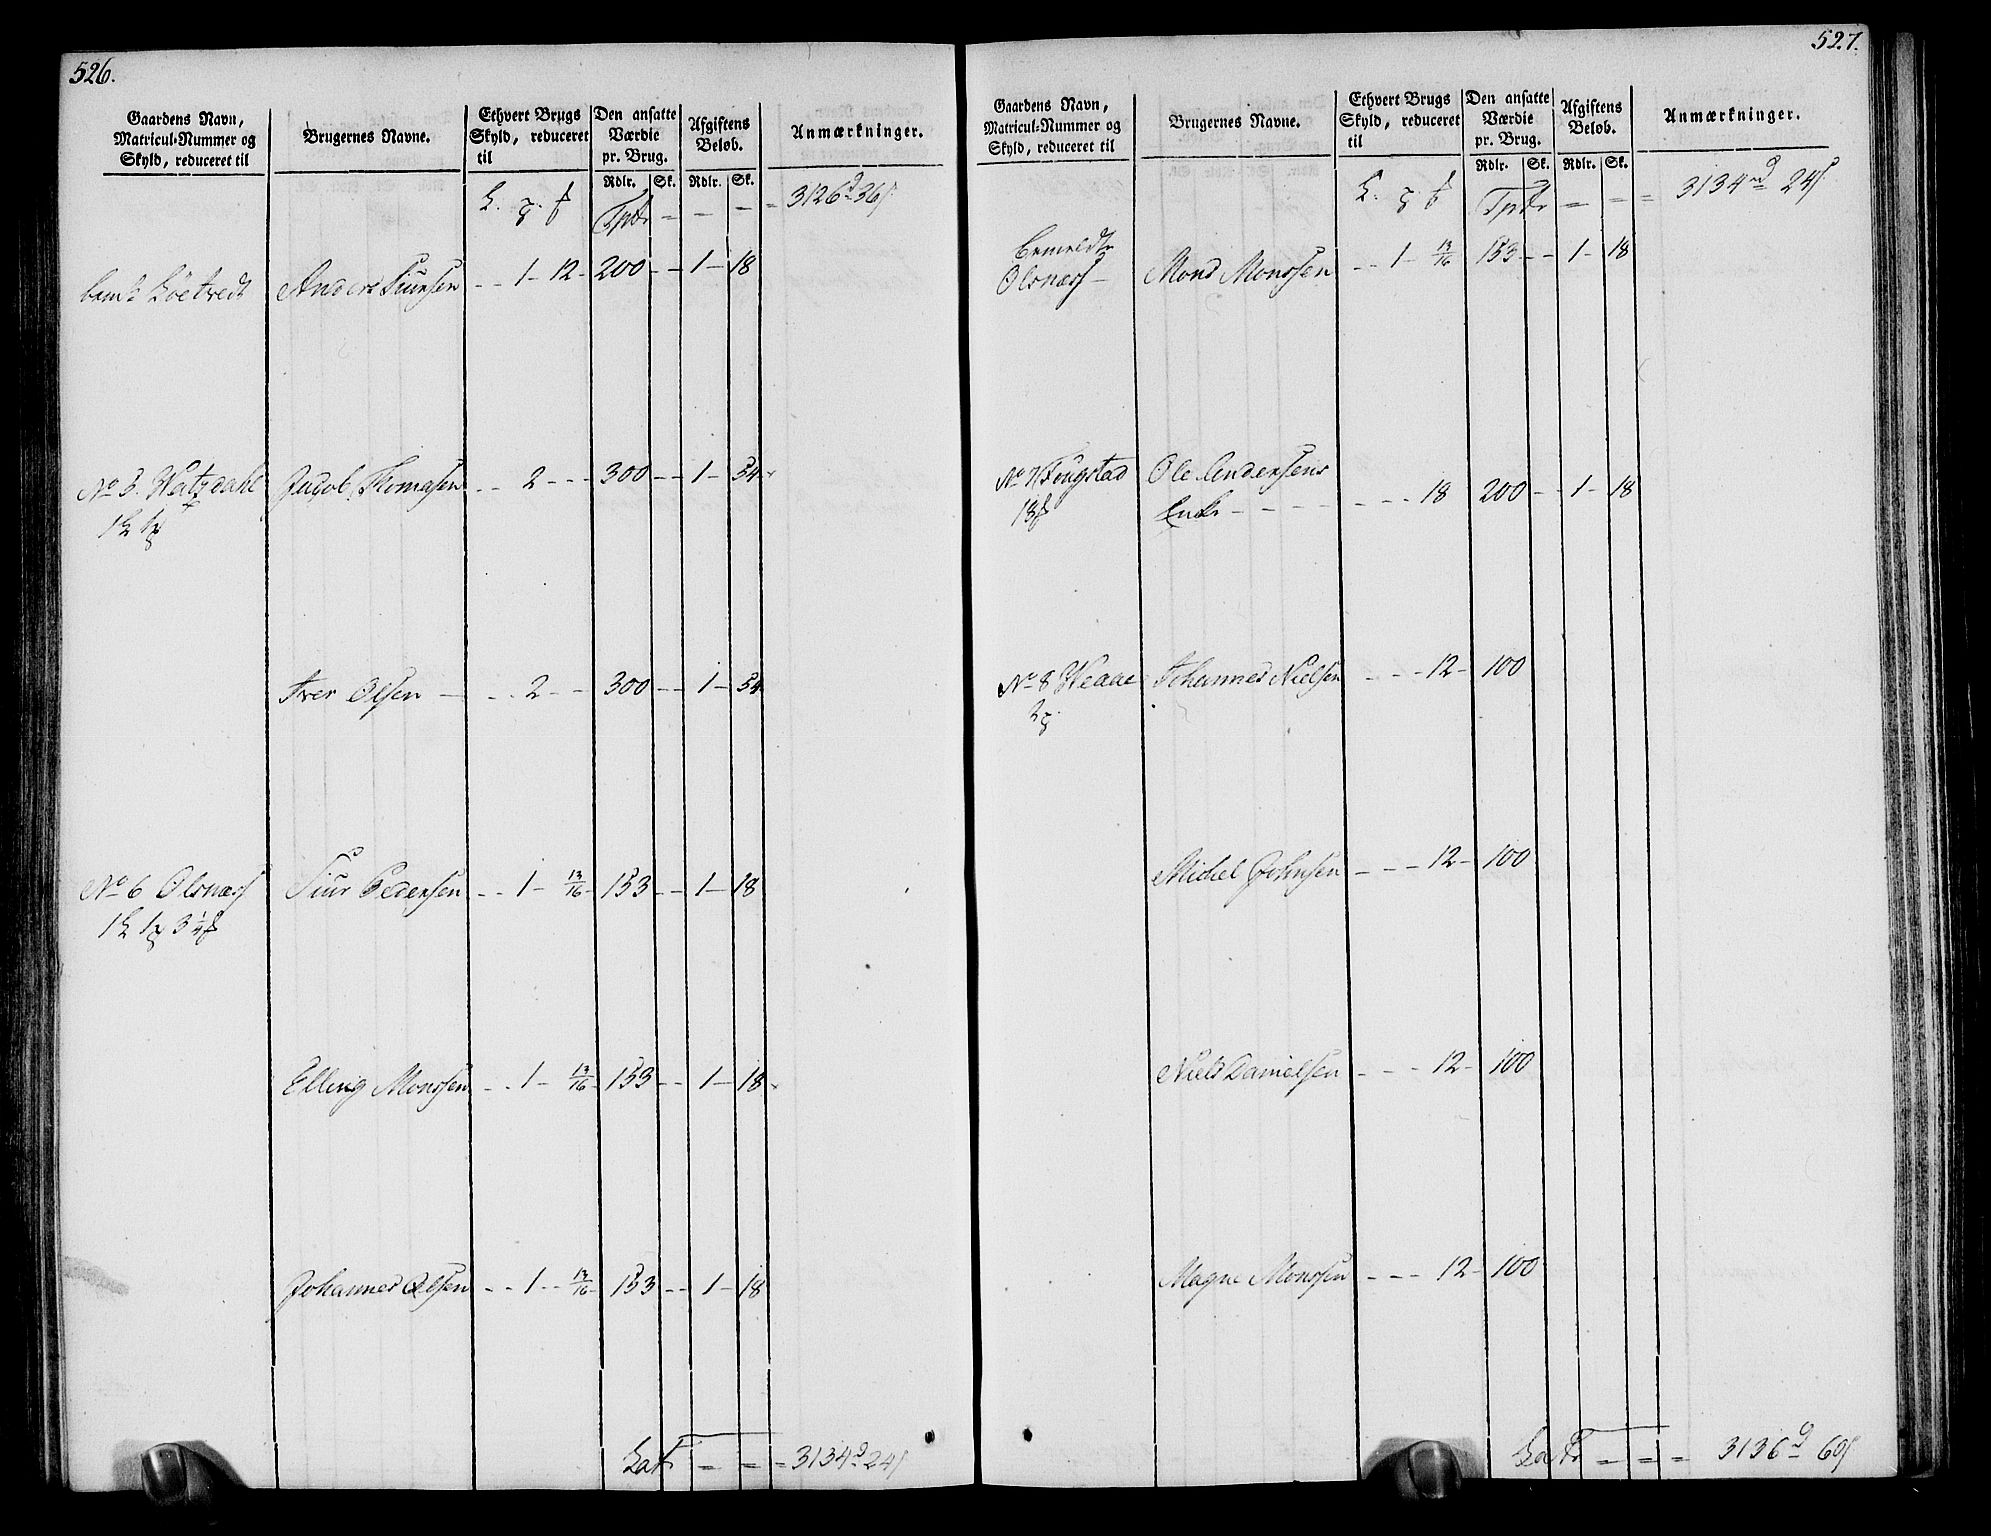 526.
Gaardens Navn, Matricul-Nummer og Skyld, reduceret til
Brugernes Navne.
Ethvert Brugs Skyld, reduceret til
Den ansatte Værdie pr. Brug.
Afgiftens Beløb.
Anmærkninger.
Rdlr. Sk. Rdlr. Sk.
Tptr = - - = 3126 d 36 s
bemt Løetvedt Anders Siursen - - 1 - 12 - 200 - - 1 - 18
No 3. Watzdahl Jacob Thomasen - - 2 - - - 300 - - 1 - 54
Iver Olsen - - - 2 - - 300 - - 1 - 54
No 6 Olsnæss Siur Pedersen - - 1 - 13/16 - 153 - - 1 - 18
Elling Monssen - - 1 - 13/16 - 153 - - 1 - 18
Johannes Olsen - - 1 - - 13/16 - 153 - - 1 - 18
Latr = = = 3134 d 24 s
527.
Gaardens Navn, Matricul-Nummer og Skyld, reduceret til
Brugernes Navne.
Ethvert Brugs Skyld, reduceret til
Den ansatte Værdie pr. Brug.
Afgiftens Beløb.
Anmærkninger.
Rdlr. Sk. Rdlr. Sk.
Tptr = = = 3134 rd 24 s
Bemeldte
Olsnæss - Mons Monssen - - 1 - 13/16 153 - - 1 - 18
No 7 Ole Andersens
Enke - - - - - - - - 18 200 - - 1 - 18
No 8 Johannes Nielsen - - - 12 - 100
Michel Johnsen - - - 12 - 100
Niels Danielsen - - - 12 - 100
Magne Monssen - - - 12 - 100
Latr = = = 3136 d 60 s